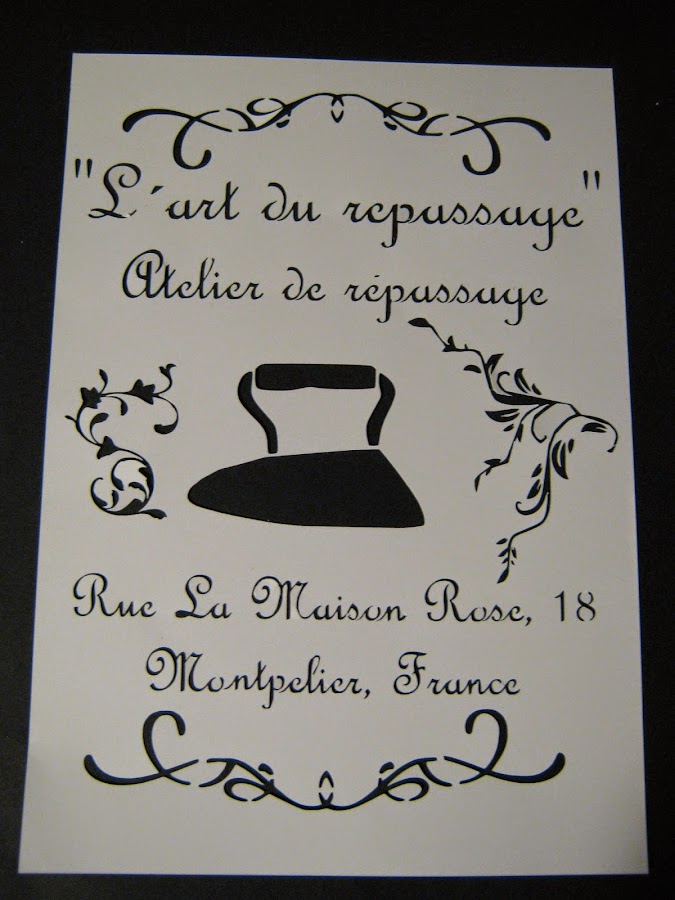 "L´art du repassage"
Atelier de répassage
Rue La Maison Rose, 18
Montpelier, France